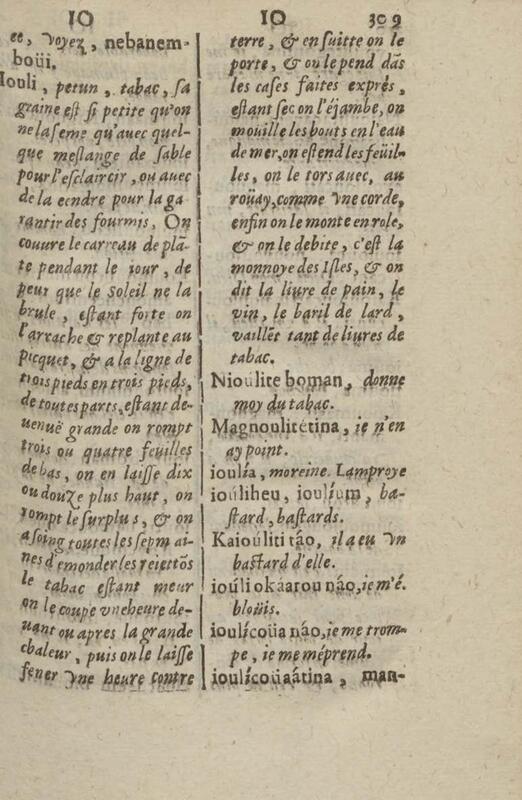 IO
ee, voyez, nebanem-
boüi.
Iouli, petun, tabac, sa
graine est si petite qu'on
ne la seme qu'auec quel-
que meslange de sable
pour l'esclaircir, ou auec
de la cendre pour la ga
rantir des fourmis, On
couure le carreau de plã-
te pendant le iour, de
peur que le Soleil ne la
brule, estant forte on
l'arrache & replante au
picquet, & a la ligne de
trois pieds en trois pieds,
de toutes parts, estant de-
uenuë grande on rompt
trois ou quatre feuilles
de bas, on en laisse dix
ou douze plus haut, on
rompt le surplus, & on
a soing toutes les sepm ai-
nes d'emonder les reiettõs
le tabac estant meur
on le coupe vne heure de-
uant ou apres la grande
chaleur, puis on le laisse
fener vne heure contre
IO 309
terre, & en suitte on le
porte, & on le pend dãs
les cases faites exprés,
estant sec on l'éjambe, on
moüille les bouts en l'eau
de mer, on estend les feüil-
les, on le tors auec, au
roüay, comme vne corde,
enfin on le monte en role,
& on le debite, c'est la
monnoye des Isles, & on
dit la liure de pain, le
vin, le baril de lard,
vaillẽt tant de liures de
tabac.
Nioúlite boman, donne
moy du tabac.
Magnoulitétina, ie n'en
ay point.
ioulía, moreine. Lamproye
ioúliheu, ioulíum, ba-
stard, bastards.
Kaioúliti táo, il a eu vn
bastard d'elle.
ioúli okáarou náo, ie m'é.
bloüis.
ioulícoüa náo, ie me trom-
pe, ie me méprend.
ioulícoüaátina, man-